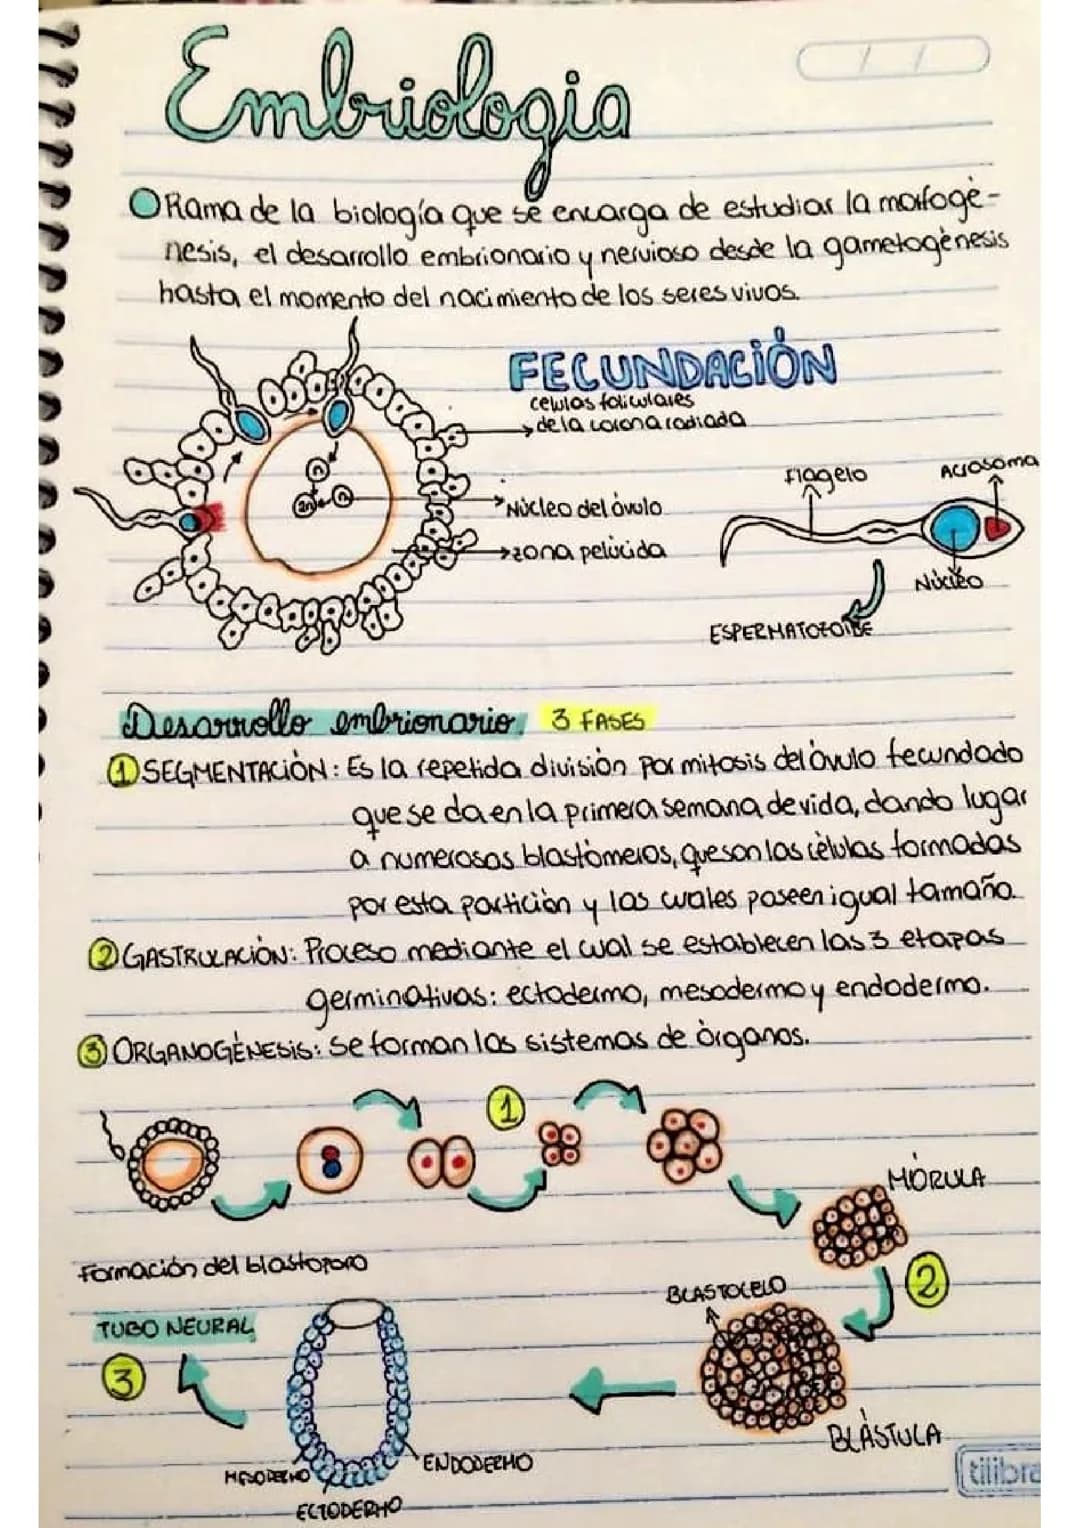 Embriologia
Rama de la biología que se encarga de estudiar la morfogé-
nesis, el desarrollo embrionario y nervioso desde la gametogènesis
hasta el momento del nacimiento de los seres vivos.
FECUNDACIÓN
celulas foliculares
de la corona radiada
Núcleo del óvulo
zona pelúcida
n
2n
n
Flagelo
Acrosoma
Núcleo
ESPERMATOZOIDE
Desarrollo embrionario. 3 FASES
1 SEGMENTACIÓN: Es la repetida división por mitosis del óvulo fecundado
que se da en la primera semana de vida, dando lugar
a numerosos blastómeros, que son las cèlulas formadas
por esta partición y las cuales poseen igual tamaño.
2 GASTRULACIÓN: Proceso mediante el cual se establecen las 3 etapas
germinativas: ectodermo, mesodermo y endodermo.
3 ORGANOGÈNESIS: Se forman los sistemas de òrganos.
1
MÓRULA
2
Formación del blastoporo
BLASTOCELO
TUBO NEURAL
3
BLÁSTULA
MESODERMO
ENDODERMO
ECTODERMO
tilibra